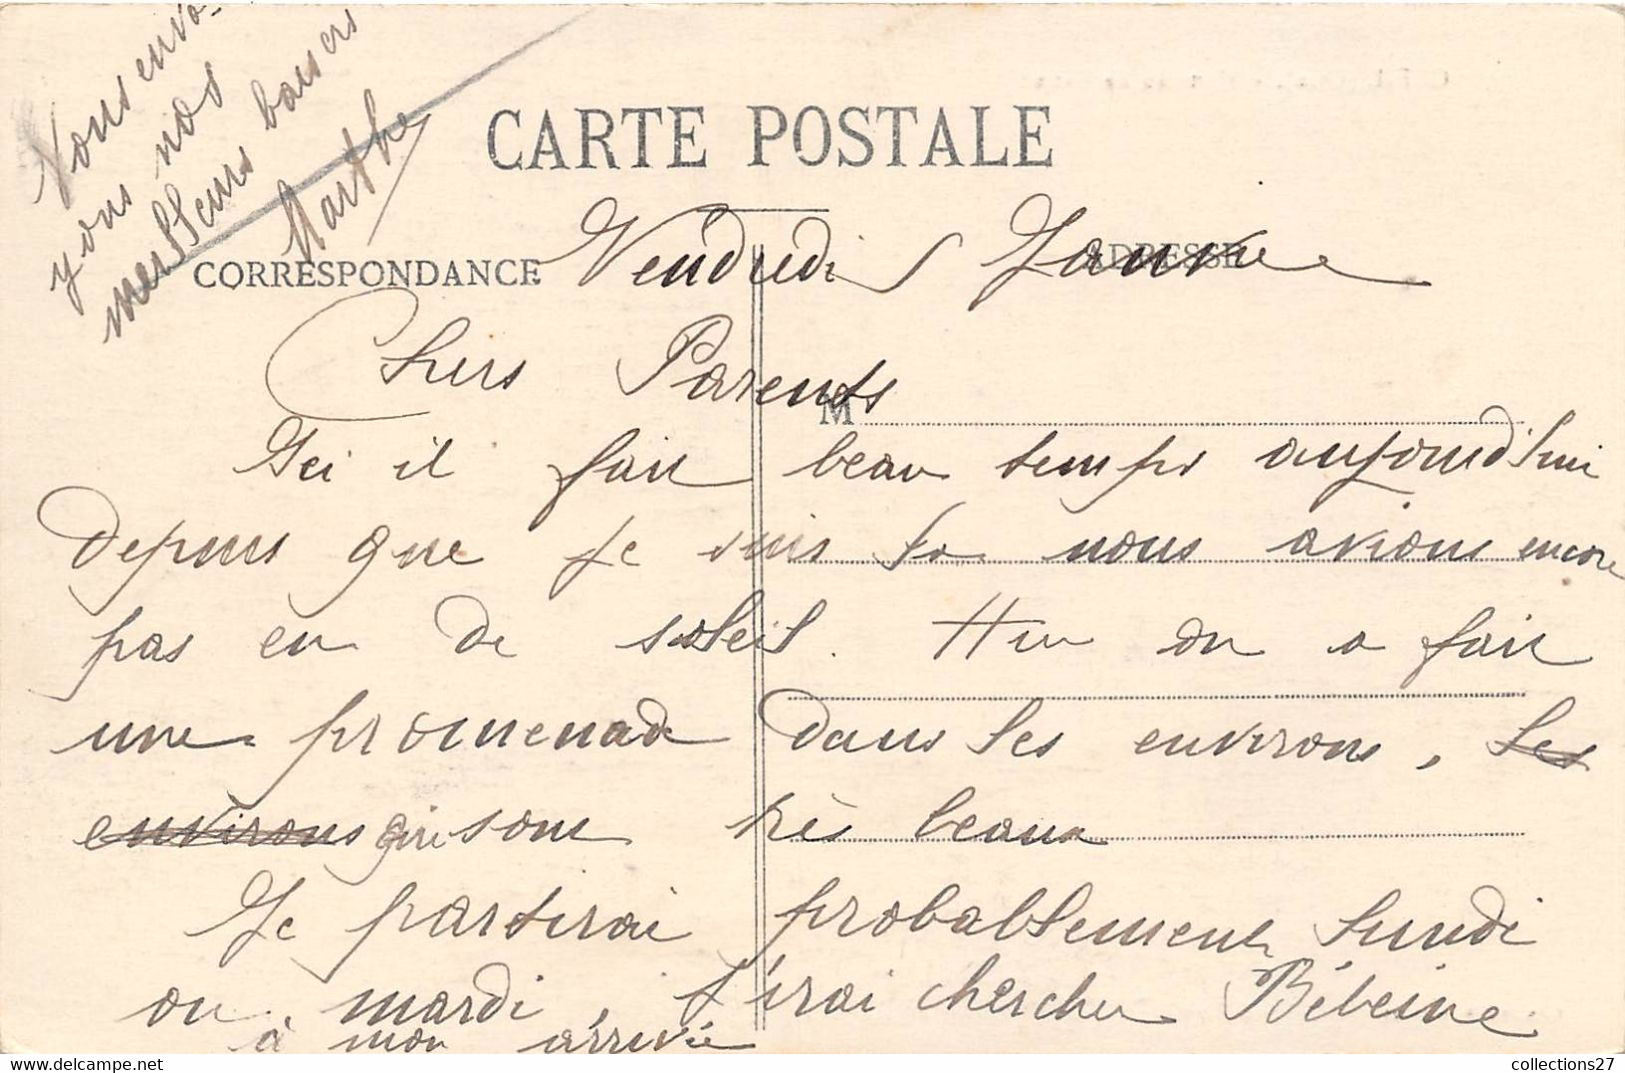 Vous envo-
yons nos
meilleurs baisers
Marthe
CARTE POSTALE
CORRESPONDANCE
ADRESSE
Vendredi
M
Chers Parents
Ici il fait beau temps aujourd'hui
depuis que je suis là nous avions encore
pas eu de soleil. Hier on a fait
une promenade dans les environs, les
environs qui sont très beaux
Je partirai probablement lundi
ou mardi, j'irai chercher Bébeine
à mon arrivée
collections27